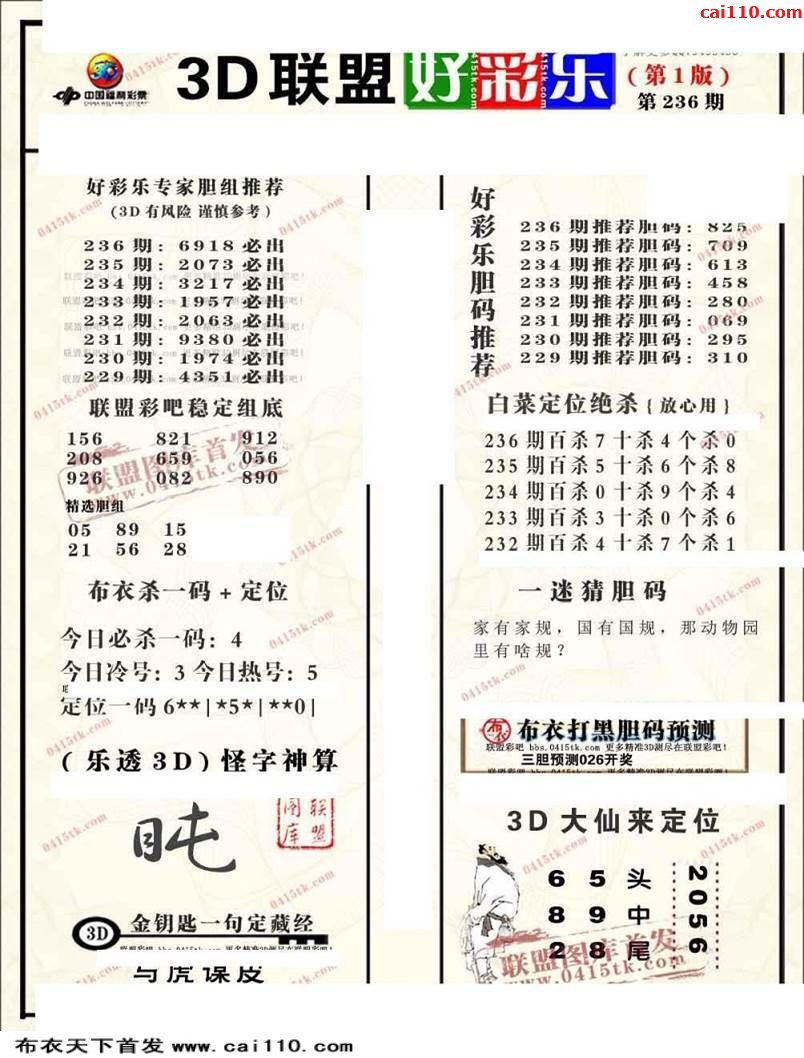 cai110.com
中国福利彩票
CHINA WELFARE LOTTERY
3D联盟好彩乐
(第1版)
第236期
好彩乐专家胆组推荐
(3D有风险 谨慎参考)
236期: 6918必出
235期: 2073必出
234期: 3217必出
233期: 1957必出
232期: 2063必出
231期: 9380必出
230期: 1974必出
229期: 4351必出
联盟彩吧稳定组底
156 821 912
208 659 056
926 082 890
联盟图库首发
www.0415tk.com
精选胆组
05 89 15
21 56 28
布衣杀一码+定位
今日必杀一码: 4
今日冷号: 3 今日热号: 5
定位一码 6**|*5*|**0|
(乐透3D) 怪字神算
联盟图库
3D
金钥匙一句定藏经
与虎谋皮
好彩乐胆码推荐
236期推荐胆码: 825
235期推荐胆码: 709
234期推荐胆码: 613
233期推荐胆码: 458
232期推荐胆码: 280
231期推荐胆码: 069
230期推荐胆码: 295
229期推荐胆码: 310
白菜定位绝杀{放心用}
236期百杀7十杀4个杀0
235期百杀5十杀6个杀8
234期百杀0十杀9个杀4
233期百杀3十杀0个杀6
232期百杀4十杀7个杀1
一迷猜胆码
家有家规，国有国规，那动物园
里有啥规？
布衣打黑胆码预测
联盟彩吧 bbs.0415tk.com 更多精准3D测尽在联盟彩吧!
三胆预测026开奖
3D大仙来定位
6 5 头
8 9 中
2 8 尾
2056
联盟图库首发
www.0415tk.com
0415tk.com
布衣天下首发 www.cai110.com